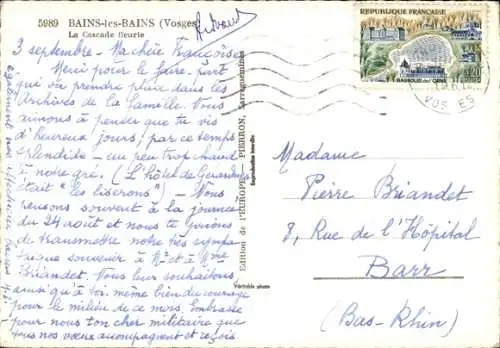 5989 BAINS-les-BAINS (Vosges)
La Cascade fleurie
3 septembre - Ma chère Françoise
Merci pour le faire-part
qui va prendre place dans les
Archives de la famille. Vous
aimons à penser que tu vis
d'heureux jours, par ce temps
splendide - un peu trop chaud
à notre gré. (L'hôtel de Gérardmer
était "les liserons") - Nous
pensons souvent à la journée
du 24 août et nous te prions
de transmettre notre très sympa-
thique souvenir à Mr et à Mme
Briandet. Vous leur souhaitons,
ainsi qu'à toi, même bien du courage
pour le milieu de ce mois. Embrasse
pour nous ton cher militaire que
tous nos vœux accompagnent et reçois
également nos affectueux baisers
Edition de l'EUROPE - PIERRON, Sarreguemines
Reproduction interdite
Véritable photo
REPUBLIQUE FRANÇAISE
BAGNOLES de l'ORNE
0,20
VOSGES
Madame
Pierre Briandet
8, Rue de l'Hôpital
Barr
(Bas-Rhin)